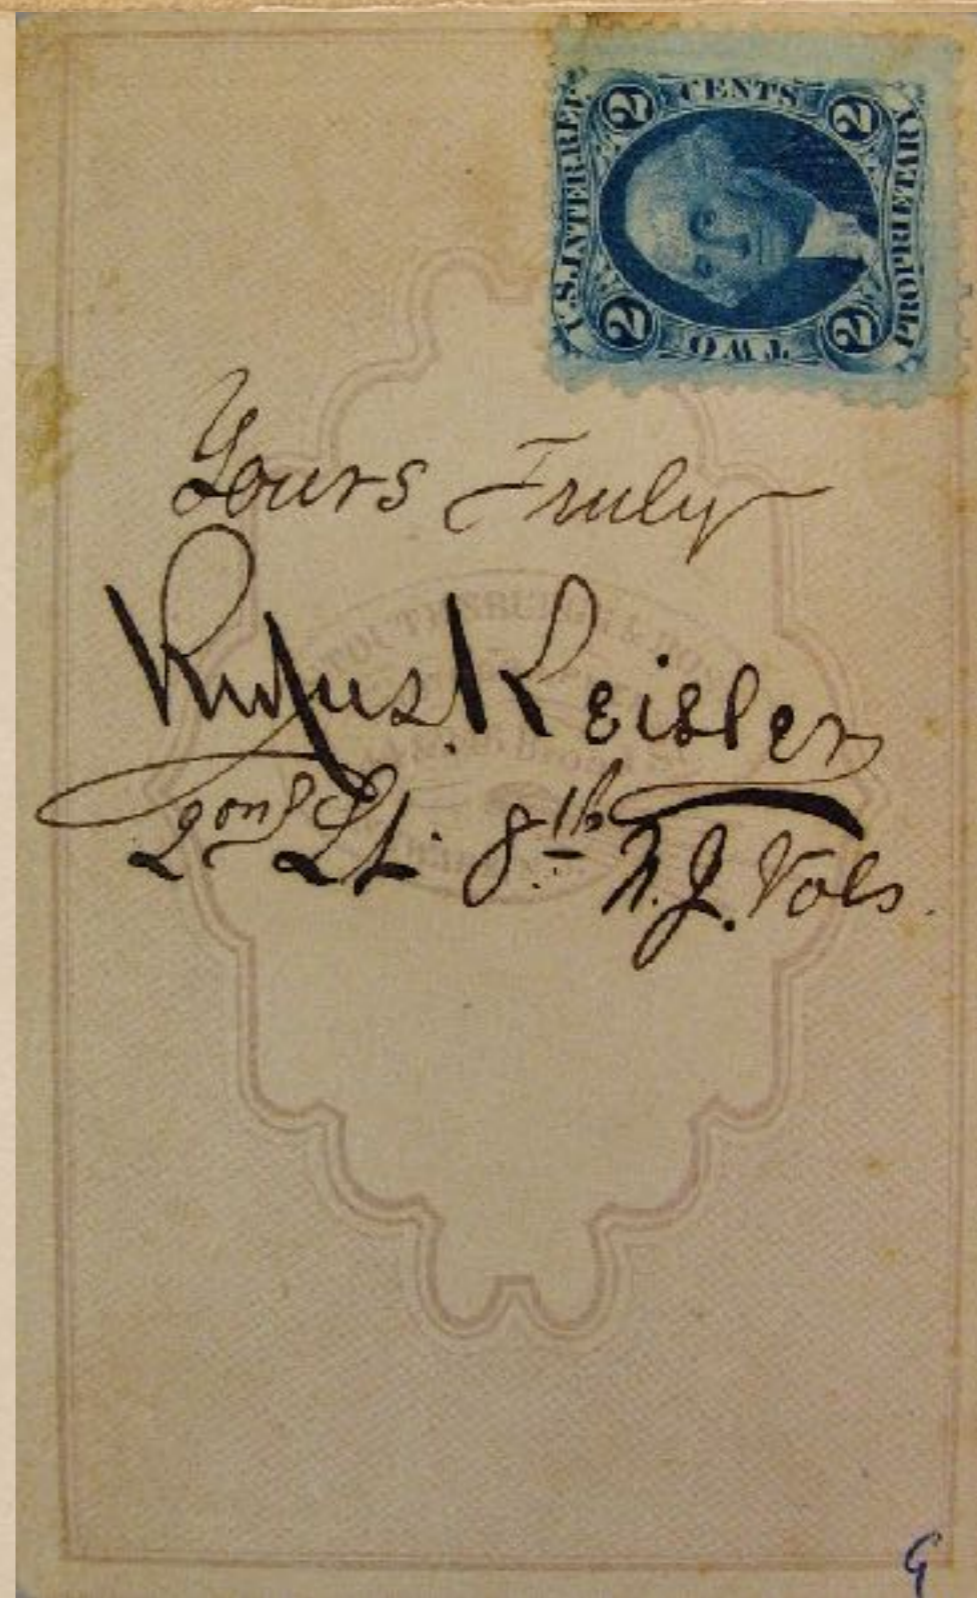 CENTS
2 2
U.S. INTER. REV.
PROPRIETARY
2 2
TWO
Yours Truly
Rufus. Keisler
2ond Lt. 8th N.J. Vols.
G